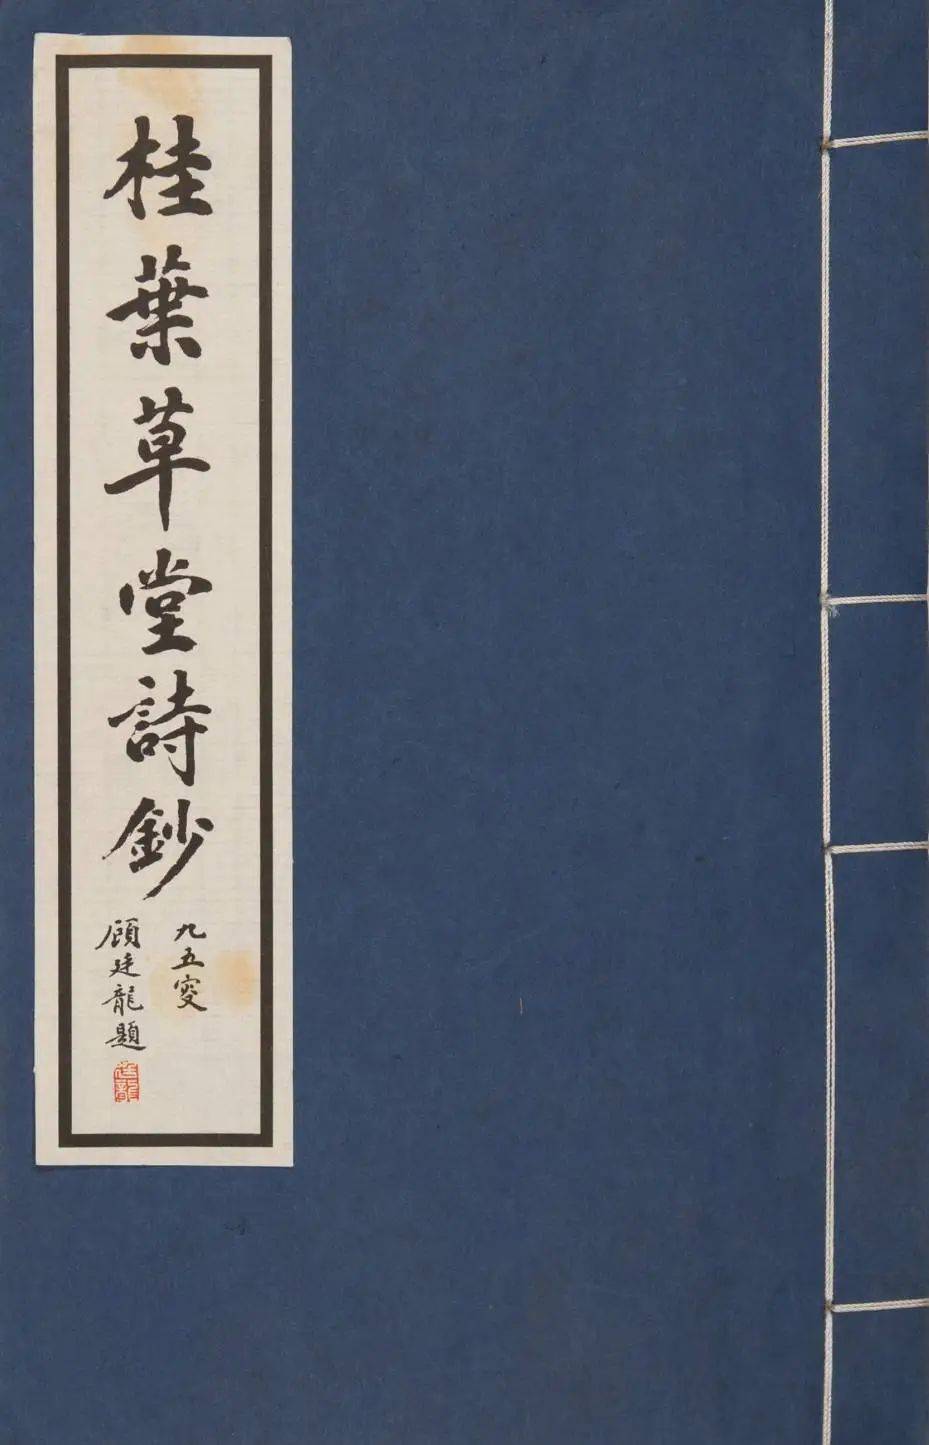 桂葉草堂詩鈔
九五叟
顧廷龍題
廷龍